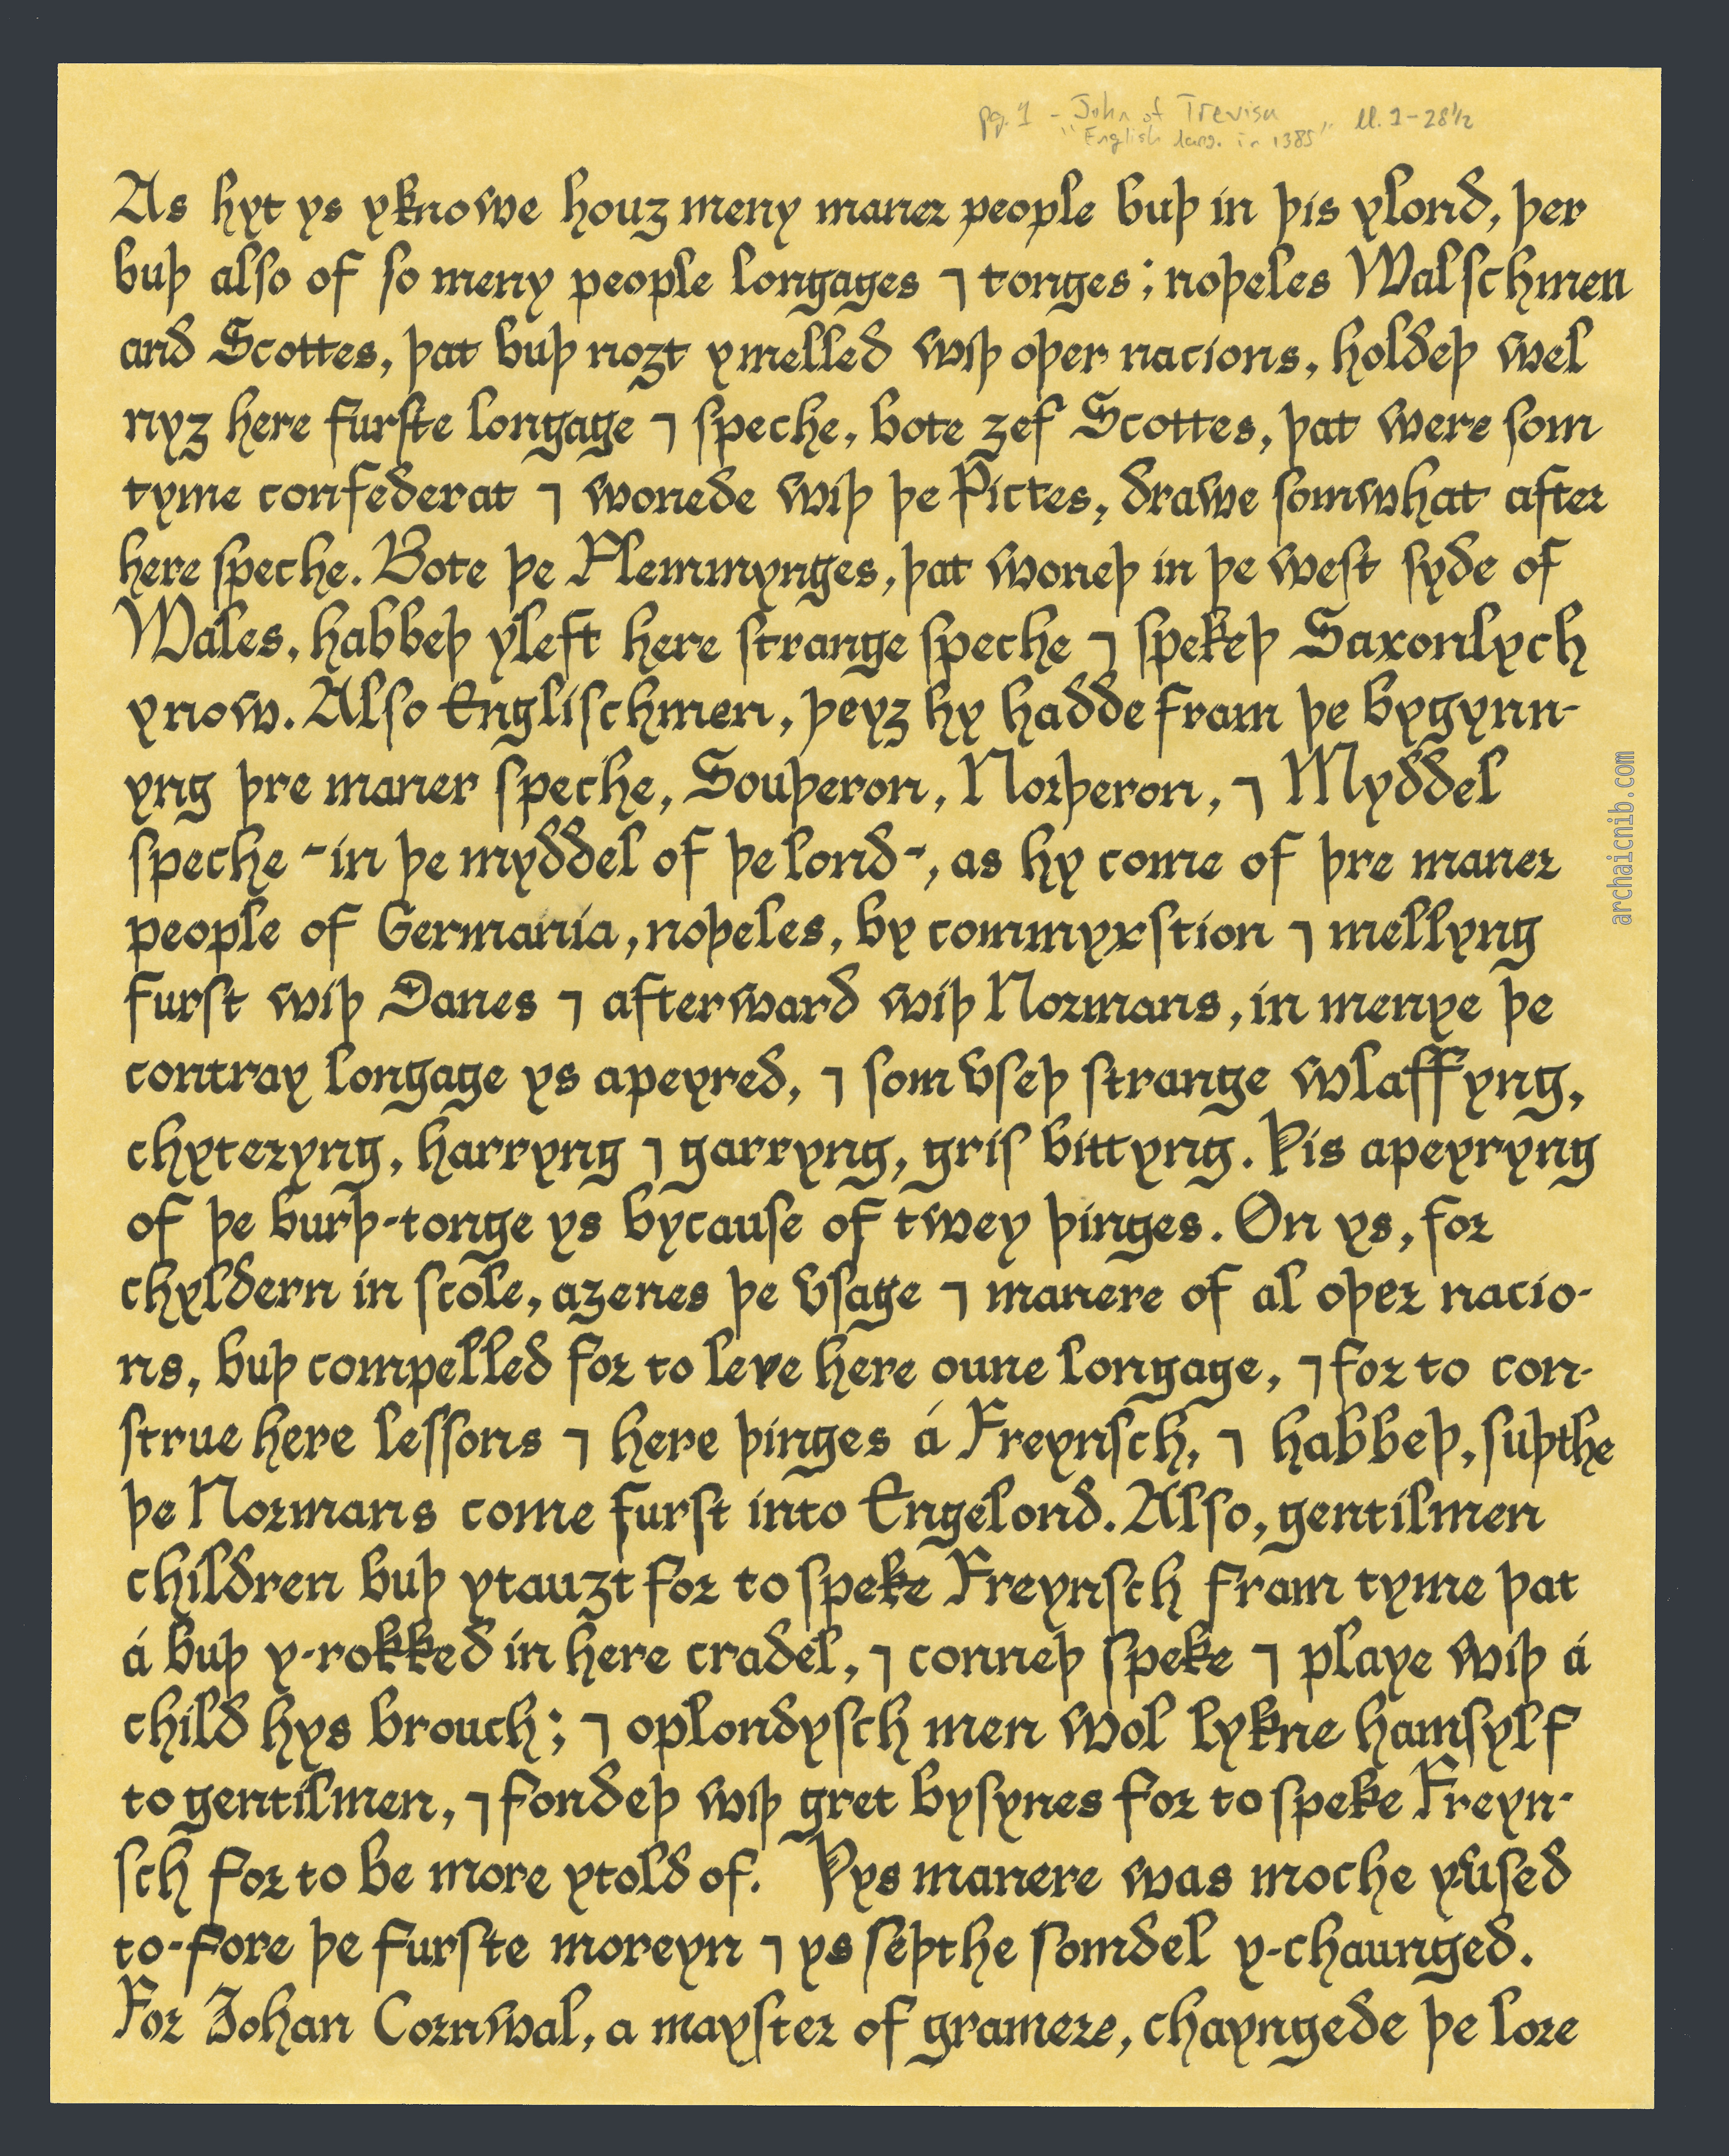 pg. 1 - John of Trevisa ll. 1-28½
"English lang. in 1385"
As hyt ys yknowe houʒ meny maner people buþ in þis ylond, þer
buþ also of so meny people longages ⁊ tonges; noþeles Walschmen
and Scottes, þat buþ noʒt ymelled wiþ oþer nacions, holdeþ wel
nyʒ here furste longage ⁊ speche, bote ʒef Scottes, þat were som
tyme confederat ⁊ wonede wiþ þe Pictes, drawe somwhat after
here speche. Bote þe Flemmynges, þat woneþ in þe west syde of
Wales, habbeþ yleft here strange speche ⁊ spekeþ Saxonlych
ynow. Also Englischmen, þeyʒ hy hadde fram þe bygynn-
yng þre maner speche, Souþeron, Norþeron, ⁊ Myddel
speche -in þe myddel of þe lond-, as hy come of þre maner
people of Germania, noþeles, by commyxstion ⁊ mellyng
furst wiþ Danes ⁊ afterward wiþ Normans, in menye þe
contray longage ys apeyred, ⁊ som vseþ strange wlaffyng,
chyteryng, harryng ⁊ garryng, gris bittyng. Þis apeyryng
of þe burþ-tonge ys bycause of twey þinges. On ys, for
chyldern in scole, aʒenes þe vsage ⁊ manere of al oþer nacio-
ns, buþ compelled for to leve here oune longage, ⁊ for to con-
strue here lessons ⁊ here þinges á Freynsch, ⁊ habbeþ, suþthe
þe Normans come furst into Engelond. Also, gentilmen
children buþ ytauʒt for to speke Freynsch fram tyme þat
á buþ y-rokked in here cradel, ⁊ conneþ speke ⁊ playe wiþ á
child hys brouch; ⁊ oplondysch men wol lykne hamsylf
to gentilmen, ⁊ fondeþ wiþ gret bysynes for to speke Freyn-
sch for to be more ytold of. Þys manere was moche yvsed
to-fore þe furste moreyn ⁊ ys seþthe somdel y-chaunged.
For Johan Cornwal, a mayster of gramere, chayngede þe lore
archaicnib.com